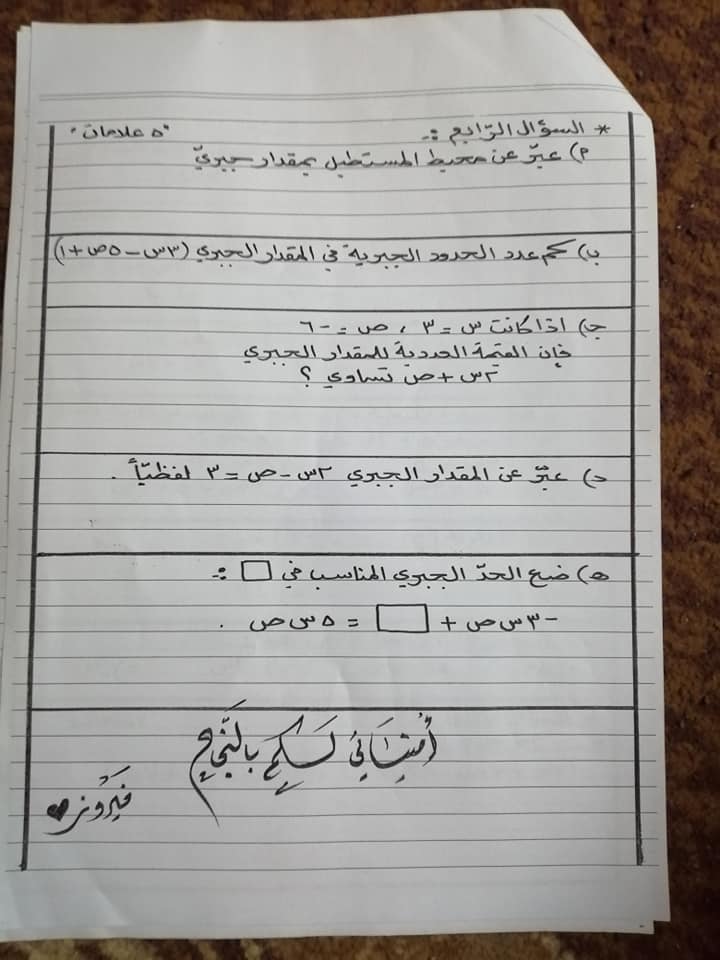 * السؤال الرّابع :- "٥ علامات"
أ) عبّر عن محيط المستطيل بمقدار جبريّ
ب) كم عدد الحدود الجبرية في المقدار الجبري (٣س - ٥ص + ١)
جـ) اذا كانت س = ٣ ، ص = -٦
فإن القيمة العددية للمقدار الجبري
٢س + ص تساوي ؟
د) عبّر عن المقدار الجبري ٢س - ص = ٣ لفظيّاً .
هـ) ضع الحدّ الجبري المناسب في □ :-
-٣س ص + □ = ٥س ص .
أُمنياتي لكم بالنّجاح
فيروز ♥